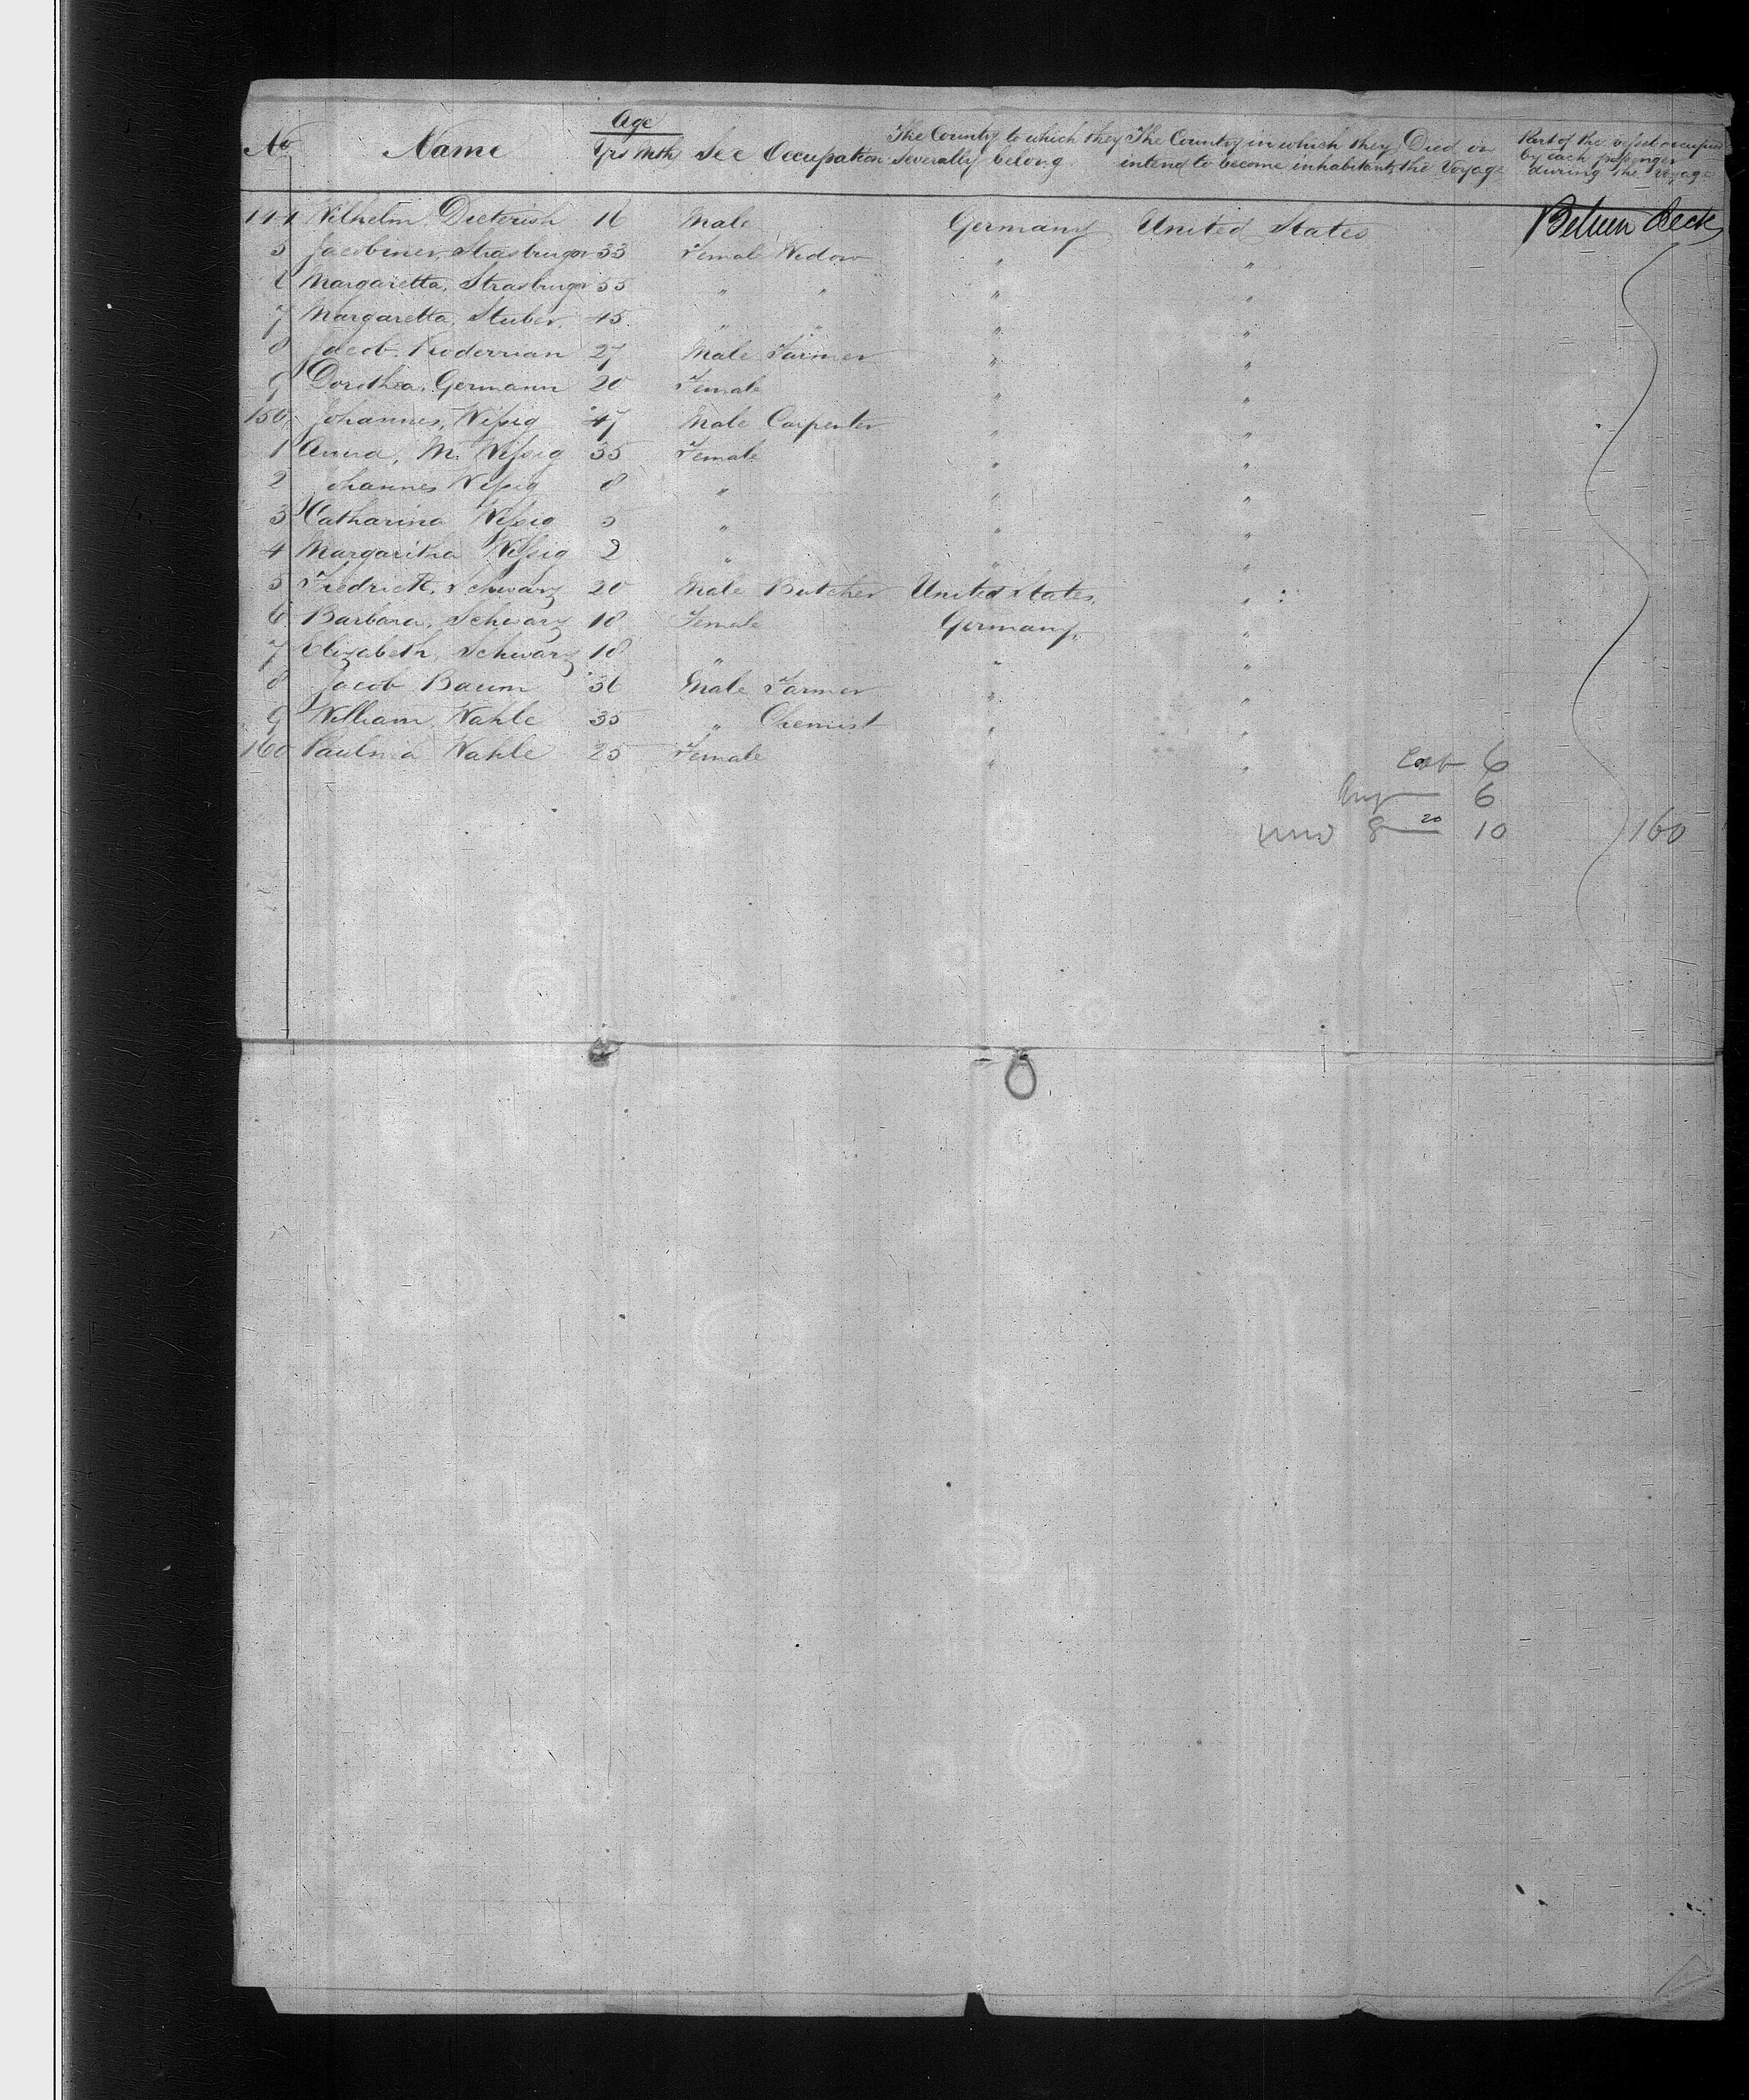 No Name Age Yrs Mth Sex Occupation The Country to which they severally belong The Country in which they intend to become inhabitants Died on the Voyage Part of the vessel occupied by each passenger during the voyage
144 Wilhelm Dieterish 16 Male Germany United States Between Deck
5 Jacobiner, Strasburger 33 Female Widow " "
6 Margaretta, Strasburger 55 " " " "
7 Margaretta, Stuber. 45 " " " "
8 Jacob 27 Male Farmer " "
9 Dorothea, Germann 20 Female " "
150 Johannes, Weſsig 47 Male Carpenter " "
1 Anna, M. Weſsig 35 Female " "
2 Johannes Weſsig 8 " " "
3 Catharina Weſsig 5 " " "
4 Margaritha Weſsig 2 " " "
5 Fredrick, Schwarz 20 Male Butcher United States, "
6 Barbara, Schwarz 18 Female Germany, "
7 Elizabeth, Schwarz 18 " " "
8 Jacob Baum 36 Male Farmer " "
9 William, Wahle 35 " Chemist " "
160 Paulina Wahle 25 Female " "
6
6
8 20 10 160